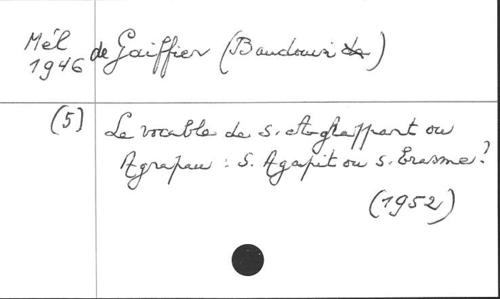 Mél de Gaiffier (Baudouin de)
1946
(5) Le vocable de S. Aghappart ou
Agrapau : S. Agapit ou S. Erasme ?
(1952)